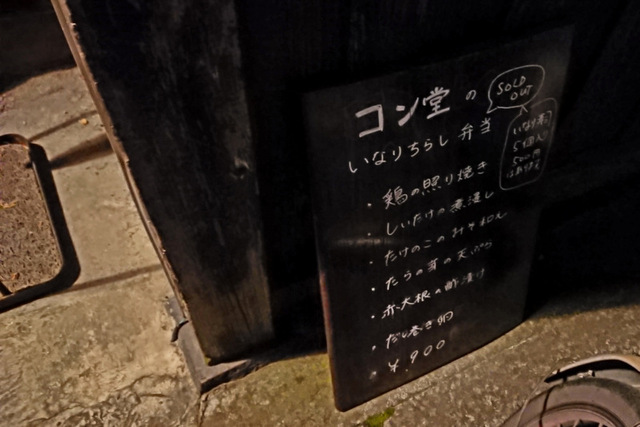 コン堂の
SOLD
OUT
いなりちらし弁当
いなり寿司
5個入
500円
はあります
・鶏の照り焼き
・しいたけの煮浸し
・たけのこのみそ和え
・たらの芽の天ぷら
・赤大根の酢漬け
・だし巻き卵
・¥900